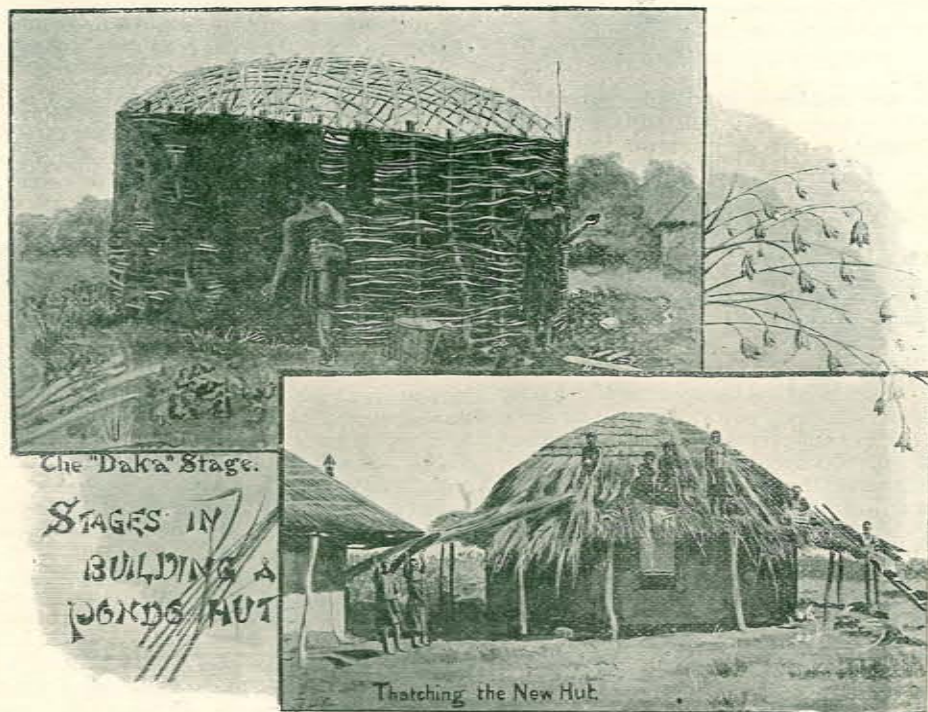 The "Daka" Stage.
STAGES IN
BUILDING A
PONDO HUT
Thatching the New Hut.